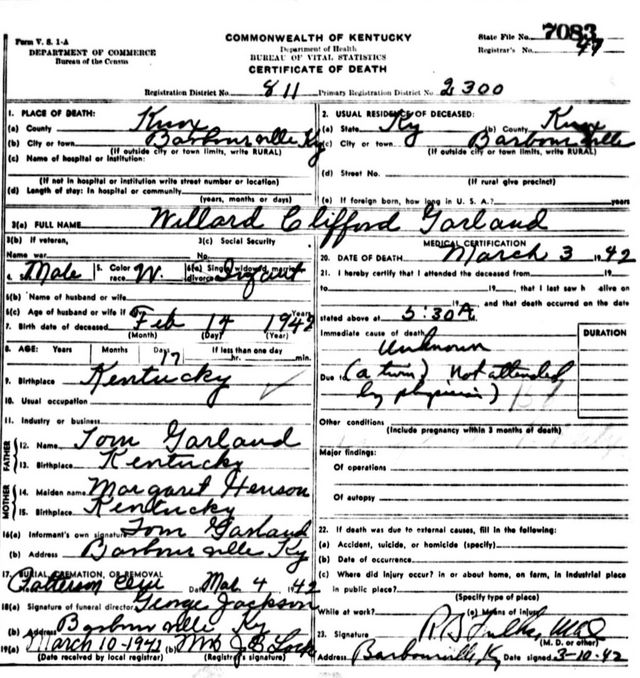 Form V. S. 1-A
DEPARTMENT OF COMMERCE
Bureau of the Census
COMMONWEALTH OF KENTUCKY
Department of Health
BUREAU OF VITAL STATISTICS
CERTIFICATE OF DEATH
State File No. 7083
Registrar's No. 47
Registration District No. 811 Primary Registration District No. 2300
1. PLACE OF DEATH:
(a) County Knox
(b) City or town Barbourville Ky
(If outside city or town limits, write RURAL)
(c) Name of hospital or institution:
(If not in hospital or institution write street number or location)
(d) Length of stay: In hospital or community
(years, months or days)
2. USUAL RESIDENCE OF DECEASED:
(a) State Ky (b) County Knox
(c) City or town Barbourville
(If outside city or town limits, write RURAL)
(d) Street No.
(If rural give precinct)
(e) If foreign born, how long in U. S. A.? years
3(a) FULL NAME Willard Clifford Garland
3(b) If veteran, 3(c) Social Security
Name war No.
4. Sex Male 5. Color or race W. 6(a) Single, widowed, married, divorced Infant
6(b) Name of husband or wife
6(c) Age of husband or wife if Years
7. Birth date of deceased Feb 14 1942
(Month) (Day) (Year)
8. AGE: Years Months Days 17 If less than one day
hr. min.
9. Birthplace Kentucky
10. Usual occupation
11. Industry or business
FATHER
12. Name Tom Garland
13. Birthplace Kentucky
MOTHER
14. Maiden name Margaret Henson
15. Birthplace Kentucky
16(a) Informant's own signature Tom Garland
(b) Address Barbourville Ky
17. BURIAL, CREMATION, OR REMOVAL
Patterson Cem Date Mar 4 1942
18(a) Signature of funeral director George Jackson
(b) Address Barbourville Ky
19(a) March 10-1942 (b) Mrs J B Lock
(Date received by local registrar) (Registrar's signature)
MEDICAL CERTIFICATION
20. DATE OF DEATH March 3 1942
21. I hereby certify that I attended the deceased from 19
to 19, that I last saw h alive on
19, and that death occurred on the date
stated above at 5:30A m.
Immediate cause of death
Unknown
Due to (a twin) Not attended
by physician)
DURATION
Other conditions
(Include pregnancy within 3 months of death)
Major findings:
Of operations
Of autopsy
22. If death was due to external causes, fill in the following:
(a) Accident, suicide, or homicide (specify)
(b) Date of occurrence
(c) Where did injury occur? in or about home, on farm, in industrial place
in public place?
(Specify type of place)
While at work? (e) Means of injury
23. Signature
(M. D. or other)
Address Barbourville, Ky Date signed 3-10-42